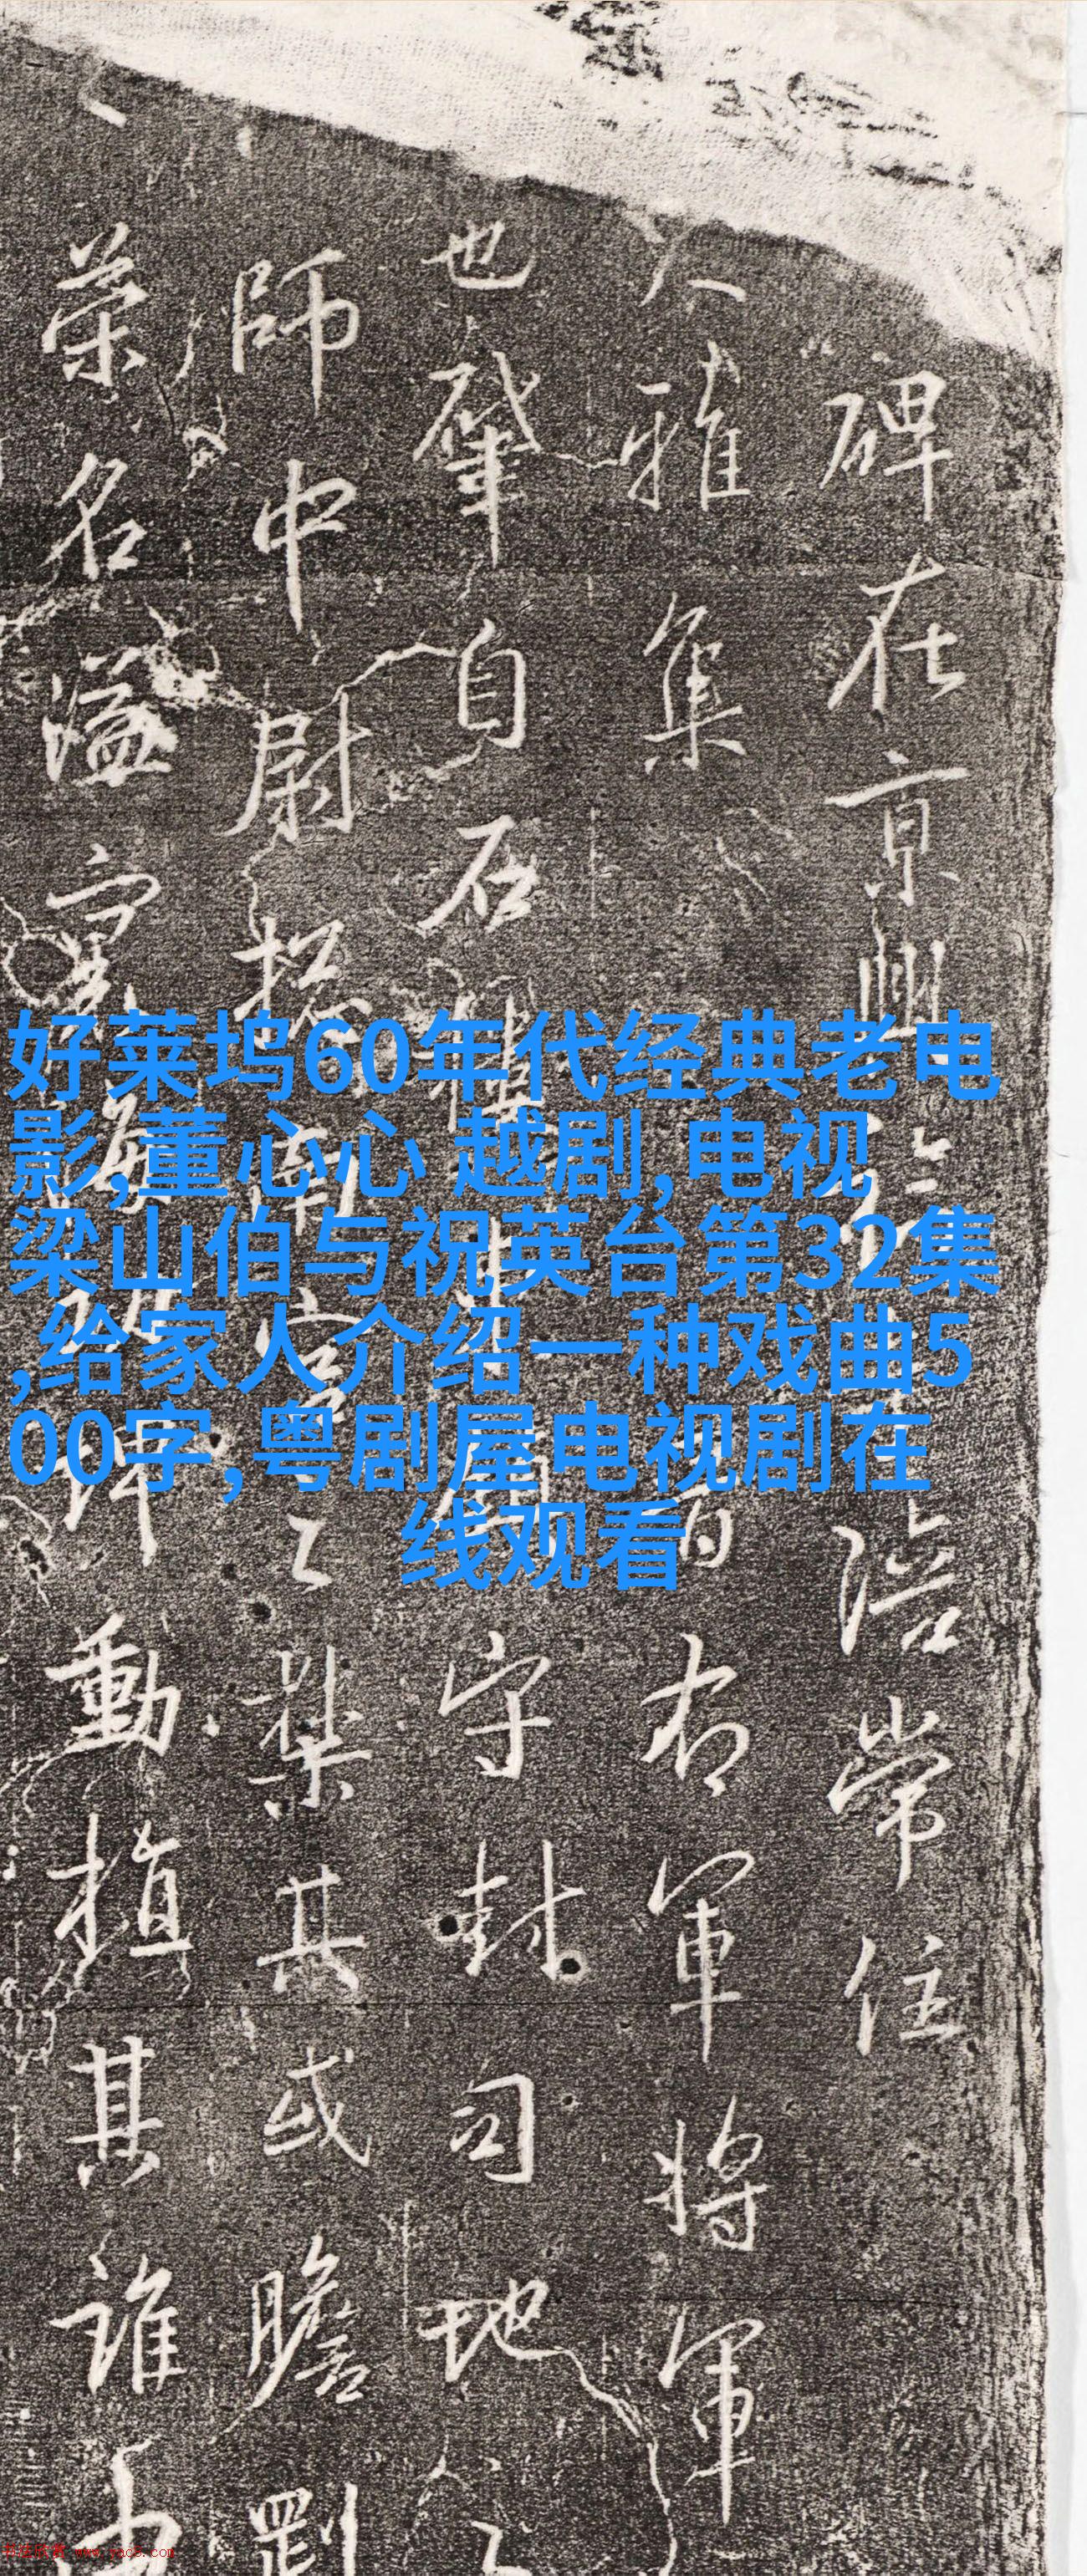 碑在京陪常住
雅集右軍將軍
也肇自后守封司地
師中尉揔之禁其或膽
榮名溢動植其誰
好莱坞60年代经典老电
影,董心心 越剧,电视
梁山伯与祝英台第32集
,给家人介绍一种戏曲5
00字,粤剧屋电视剧在
线观看
书法欣赏 www.yac8.com